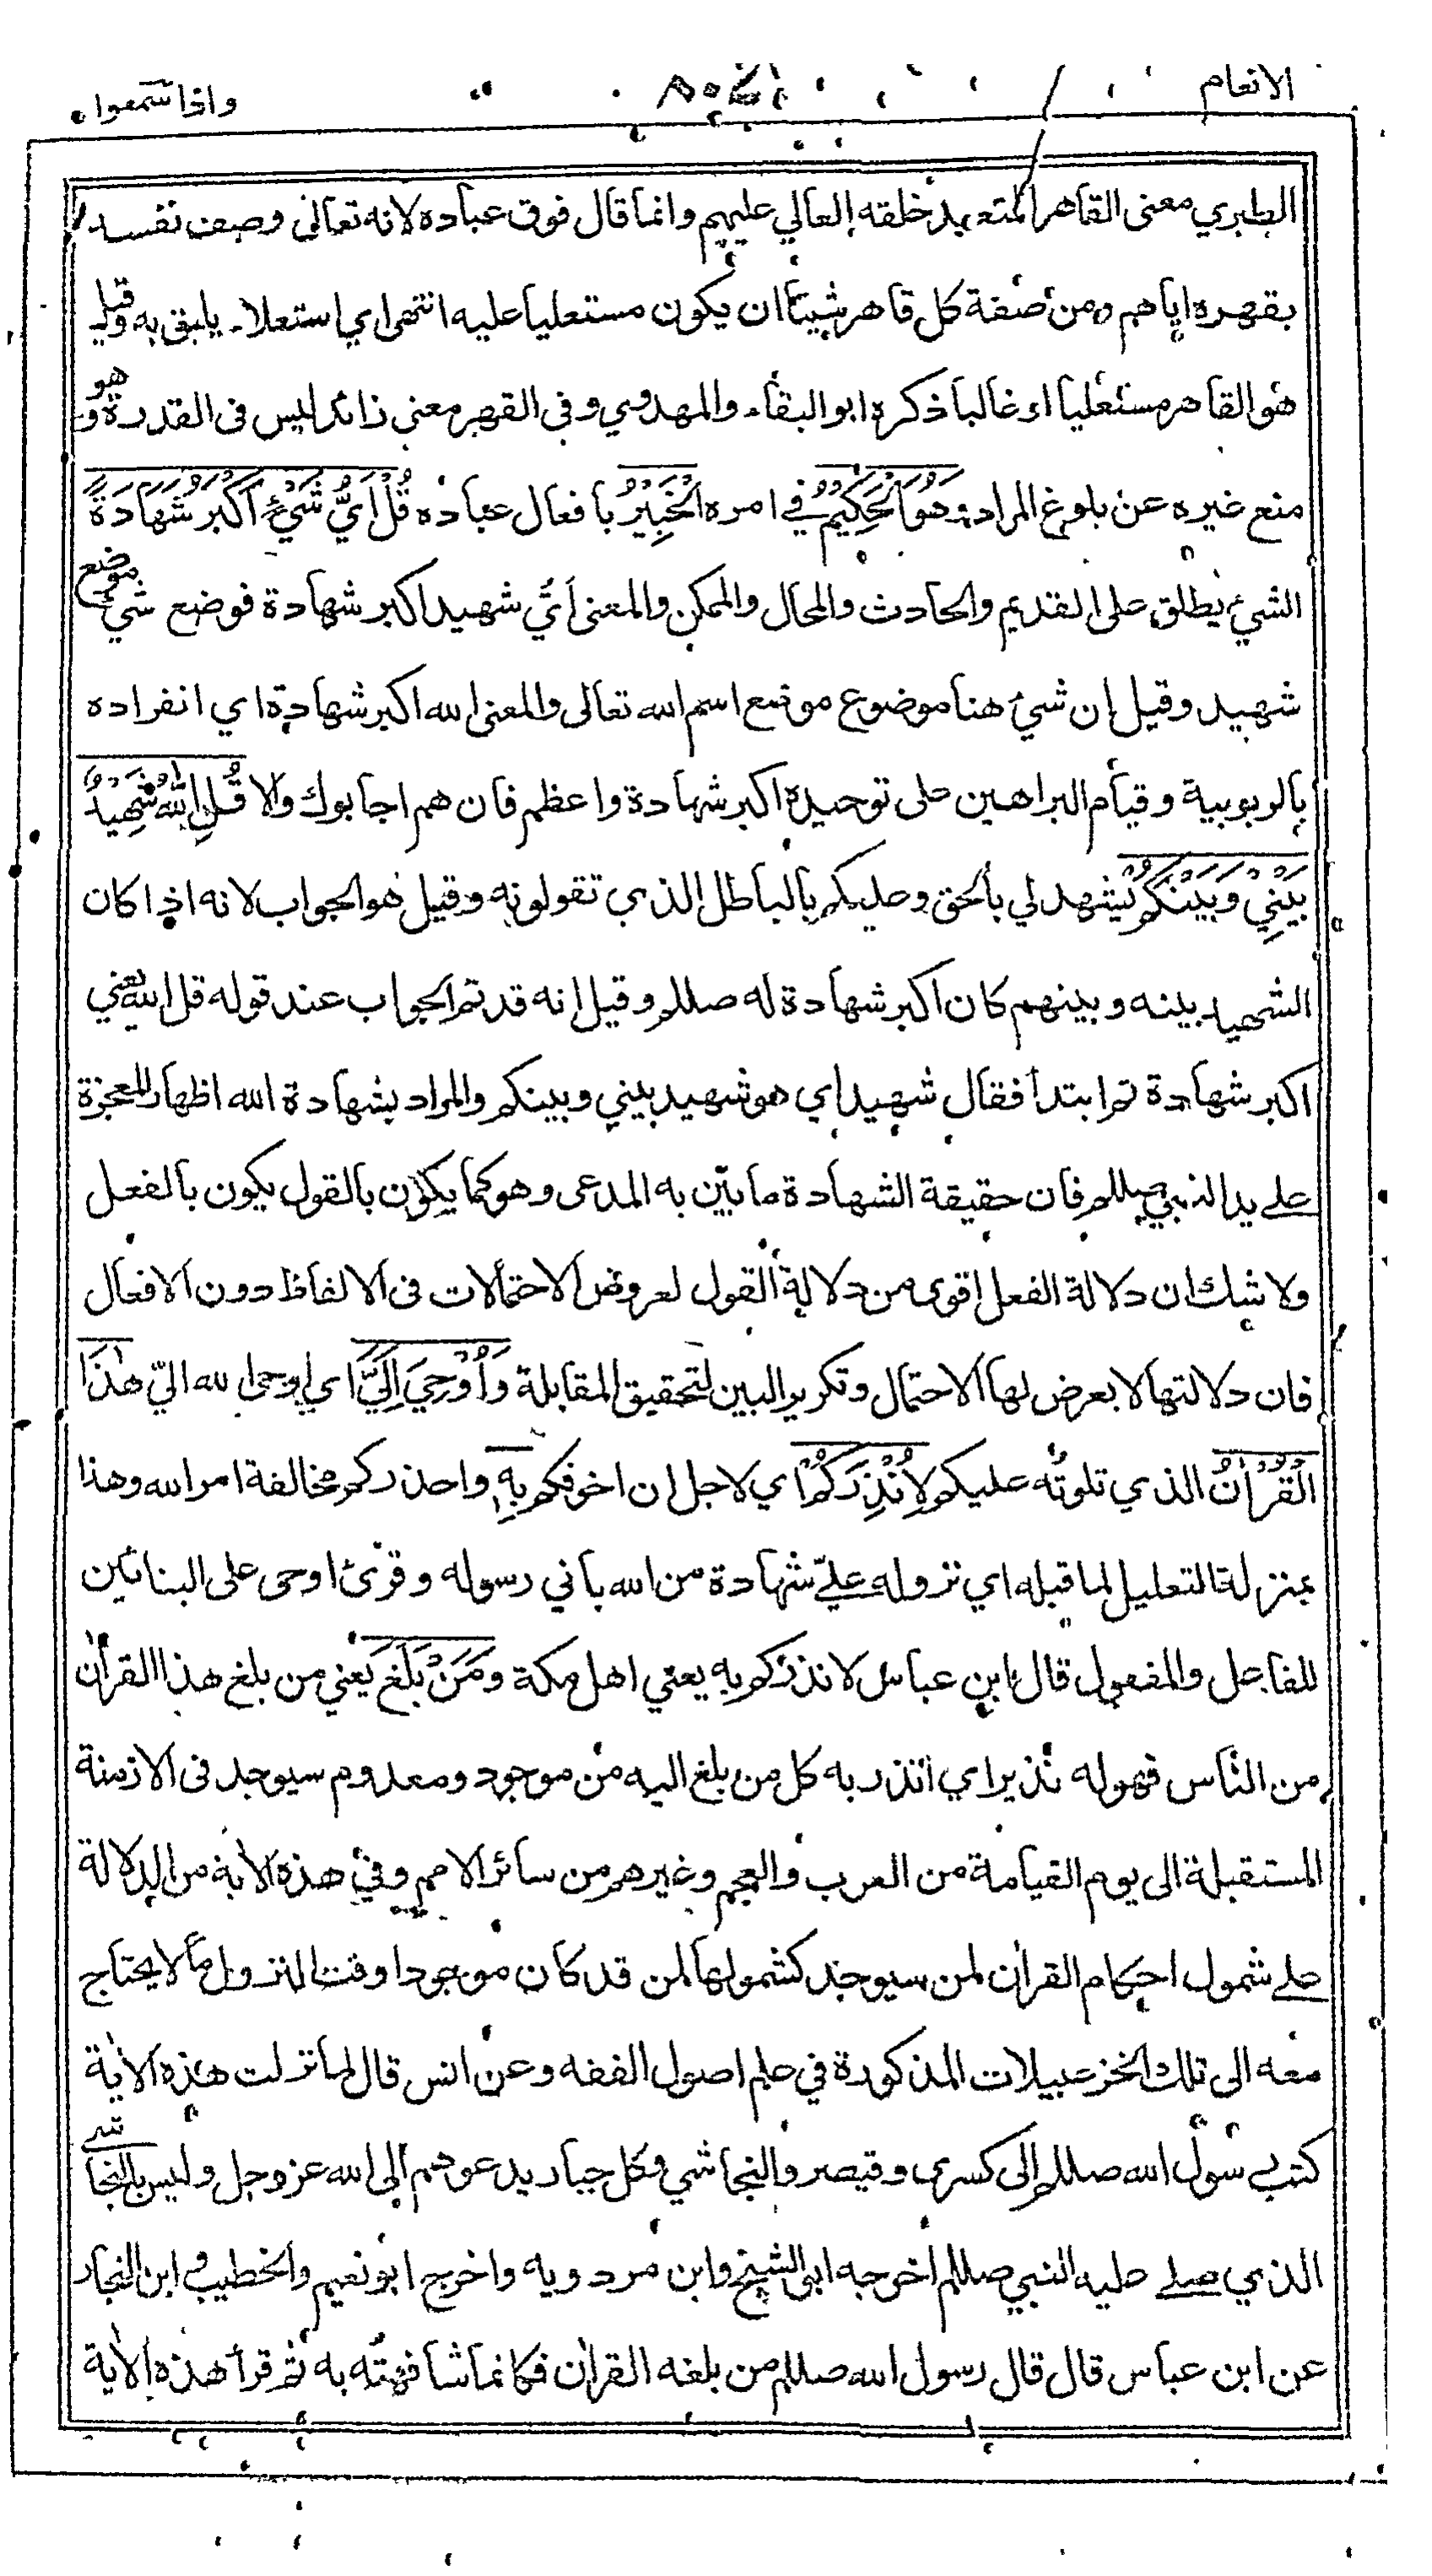 الانعام
واذا سمعوا
الطبري معنى القاهر المتعبد خلقه العالي عليهم وانما قال فوق عباده لانه تعالى وصف نفسه
بقهره اياهم ومن صفة كل قاهر شيئا ان يكون مستعليا عليه انتهى اي استعلاء يليق به وقيل
هو القاهر مستعليا او غالبا ذكره ابو البقاء والمهدوي وفي القهر معنى زائد ليس في القدرة وهو
منع غيره عن بلوغ المراد وَهُوَ الْحَكِيْمُ في امره الْخَبِيْرُ بافعال عباده قُلْ اَيُّ شَيْءٍ اَكْبَرُ شَهَادَةً
الشيء يطلق على القديم والحادث والمحال والممكن والمعنى اَيُّ شهيد اكبر شهادة فوضع شيء موضع
شهيد وقيل إن شيء هنا موضوع موضع اسم الله تعالى والمعنى الله اكبر شهادة اي انفراده
بالربوبية وقيام البراهين على توحيده اكبر شهادة واعظم فان هم اجابوك والا قُلِ اللّٰهُ شَهِيْدٌ
بَيْنِيْ وَبَيْنَكُمْ يشهد لي بالحق وعليكم بالباطل الذي تقولونه وقيل هو الجواب لانه اذا كان
الشهيد بينه وبينهم كان اكبر شهادة له صللم وقيل إنه قد تم الجواب عند قوله قل الله يعني
اكبر شهادة ثم ابتدأ فقال شهيد اي هو شهيد بيني وبينكم والمراد بشهادة الله اظهار المعجزة
على يد النبي صللم فان حقيقة الشهادة ما بيّن به المدعى وهو كما يكون بالقول يكون بالفعل
ولا شك ان دلالة الفعل اقوى من دلالة القول لعروض الاحتمالات في الالفاظ دون الافعال
فان دلالتها لا يعرض لها الاحتمال وتكرير البين لتحقيق المقابلة وَاُوْحِيَ اِلَيَّ اي اوحى الله اليّ هٰذَا
الْقُرْاٰنُ الذي تلوته عليكم لِاُنْذِرَكُمْ اي لاجل ان اخوفكم بِهٖ واحذركم مخالفة امر الله وهذا
بمنزلة التعليل لما قبله اي نزوله عليّ شهادة من الله باني رسوله وقرئ اوحى على البنائين
للفاعل والمفعول قال ابن عباس لانذركم به يعني اهل مكة وَمَنْ بَلَغَ يعني من بلغ هذا القرأن
من الناس فهو له نذير اي انذر به كل من بلغ اليه من موجود ومعدوم سيوجد في الازمنة
المستقبلة الى يوم القيامة من العرب والعجم وغيرهم من سائر الامم وفي هذه الاية من الدلالة
على شمول احكام القرأن لمن سيوجد كشمولها لمن قد كان موجودا وقت النزول ما لا يحتاج
معه الى تلك الخزعبيلات المذكورة في علم اصول الفقه وعن انس قال لما نزلت هذه الأية
كتب رسول الله صللم الى كسرى وقيصر والنجاشي وكل جبار يدعوهم الى الله عز وجل وليس بالنجاشي
الذي صلى عليه النبي صللم اخرجه ابو الشيخ وابن مردويه واخرج ابو نعيم والخطيب وابن النجار
عن ابن عباس قال قال رسول الله صللم من بلغه القرأن فكانما شافهته به ثم قرأ هذه الأية